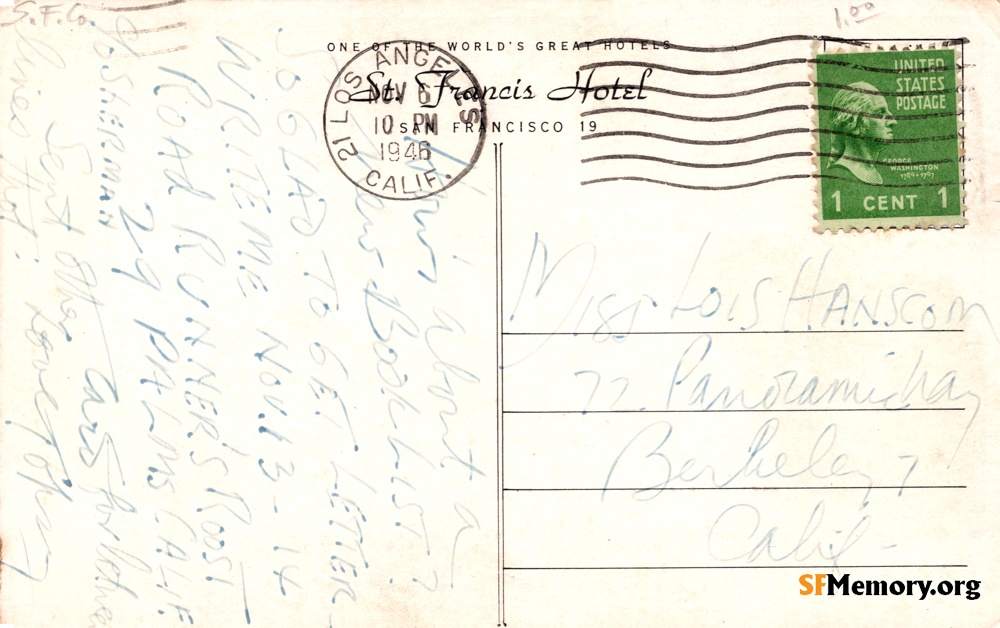 S.F.Co.
1.00
ONE OF THE WORLD'S GREAT HOTELS
St. Francis Hotel
SAN FRANCISCO 19
21 LOS ANGELES
NOV 6
10 PM
1946
CALIF.
UNITED
STATES
POSTAGE
GEORGE
WASHINGTON
1789-1797
1 CENT 1
about a
new BOOK LIST?
SO GLAD TO GET LETTER
WRITE ME NOV. 13-14
ROAD RUNNER'S ROOST
29 PALMS CALIF.
SHERMAN
Sent other card
MISS LOIS HANSCOM
72 Panoramic Way
Berkeley 7
Calif-
SFMemory.org